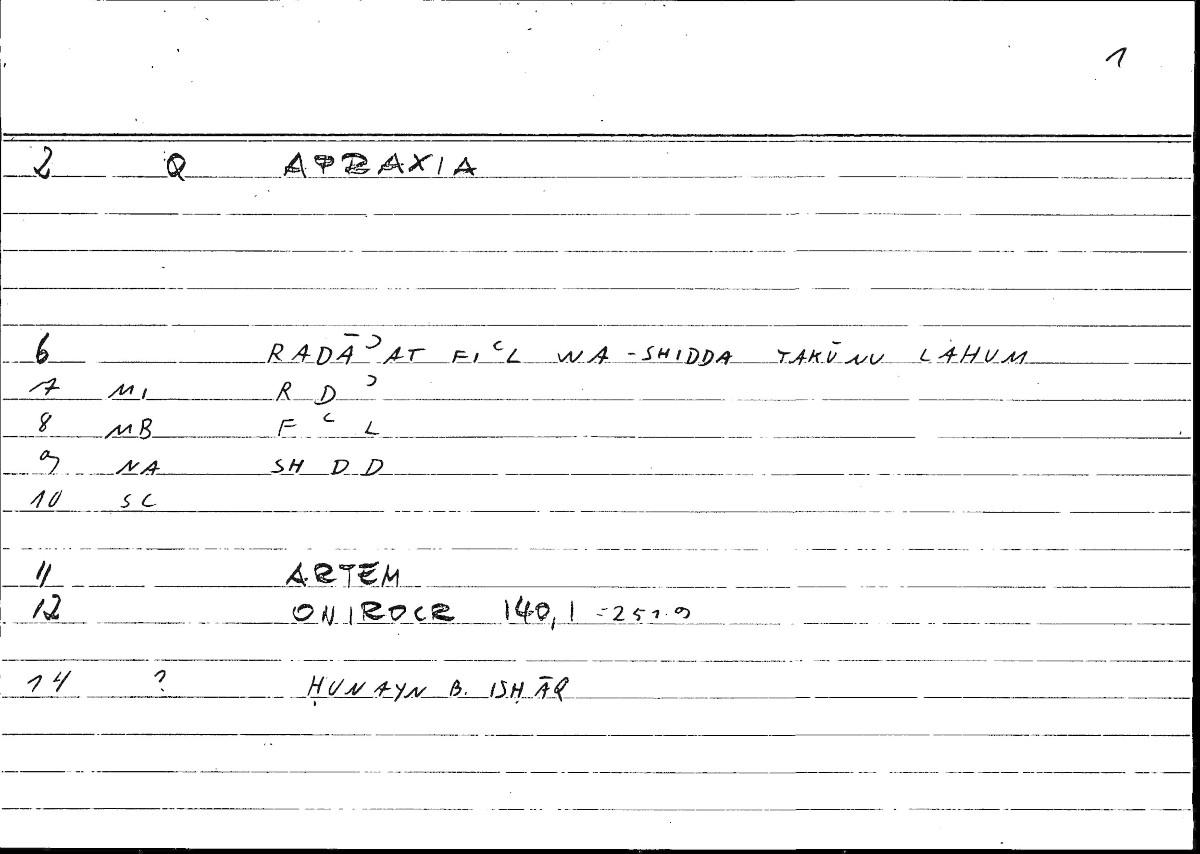 1
2 Q APRAXIA
6 RADĀʾAT FIʿL WA-SHIDDA TAKŪNU LAHUM
7 MI R D ʾ
8 MB F ʿ L
9 NA SH D D
10 SC
11 ARTEM
12 ONIROCR 140,1 =251.9
14 ? ḤUNAYN B. ISḤĀQ